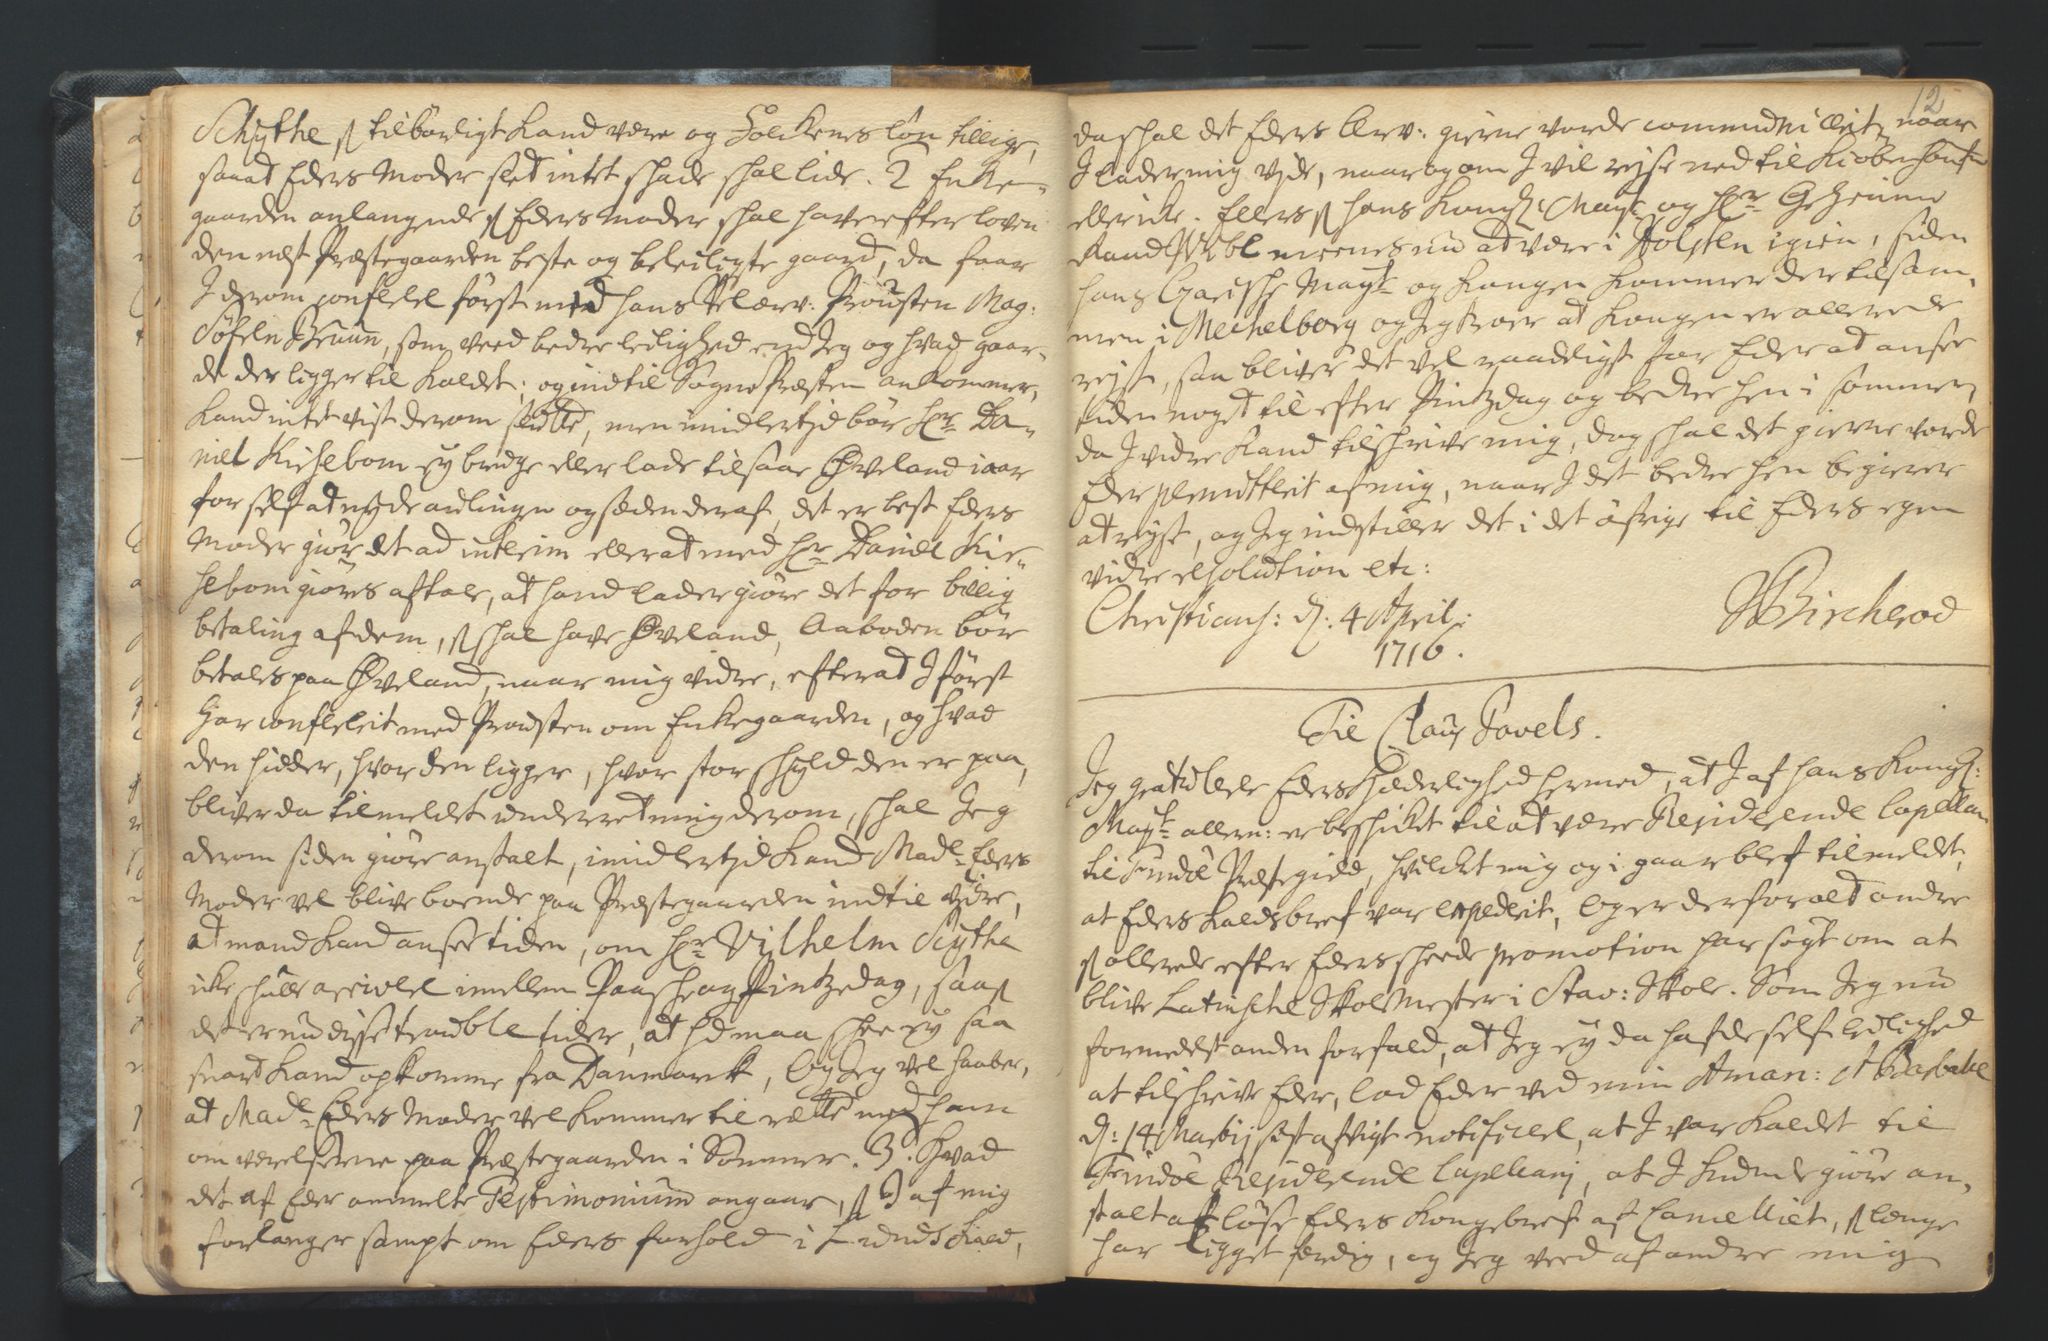 Schythe ß tilbørligt kand være og Folckens løn tillige,
saa at Eders Moder slet intet schade schal lide. 2 Enke-
gaarden anlangende ß Eders Moder schal have efter loven
den nest Præstegaarden beste og beleiligste gaard, da faar
I derom conflerel først med hans Velærv: Prousten Mag:
Søfeln Bruun, som veed bedre leilighed end Jeg og hvad gaar-
de der ligger til Kaldet; og indtil Sognepræsten ankommer,
kand intet vist derom slutte, men imidlertjd bør Hr Da-
niel Kisebom ey bruge eller lade tilsaae Øveland i aar
for self at nyde avlingen og seden deraf, det er best Eders
Moder giør det ad interim eller at med Hr Daniel Kie-
sebom giøres aftale, at hand lader giøre det for billig
betaling af dem, ß schal have Øveland, Aaboden bør
betales paa Øveland, naar mig vidre, efter at I først
har confereret med Prousten om Enkegaarden, og hvad
den hidder, hvor den ligger, hvor stor schyld den er paa,
bliver da tilmeldet underretning derom, schal Jeg
derom siden giøre anstalt, imidlertjd kand Madle Eders
Moder vel blive boende paa Præstegaarden indtil vidre,
at mand kand ansee tiden, om Hr Vilhelm Scythe
icke schulle arrivere imellem Paasche og Pintzedag, saas
det er nu disse trouble tider, at hd maa schee ey saa
snart kand opkomme fra Danmarck, Og Jeg vel haaber,
at Madle Eders Moder vel kommer til rette med ham
om værelserne paa Præstegaarden i Sommer. 3. Hvad
det af Eder ommelte Testimonium angaar, ß I af mig
forlanger sampt om Eders forhold i Kald,
12
da schal det Eders Ærv: gierne vorde communicerit, naar
I lader mig vjde, naar og om I vil rejse ned til Kiøbenhafn
eller icke. Ellers ß hans Kongl: Mayt og Hr Geheime
Raad meenes nu at være i Holsten igien, siden
hans Czarische Mayt og Kongen kommer der tilsam-
men i Mechelborg og Jeg troer at Kongen er allerede
rejst, saa bliver det vel raadeligst for Eder at ansee
tiden noget til efter Pintzdag og bedre hen i sommer,
da I vidre kand tilschrive mig, dog schal det gierne vorde
Eder meddelt af mig, naar I det bedre hen begierer
at rejse, og Jeg indstiller det i det øfrige til Eders egen
vidre resolution etc:
Christians: d: 4 April:
1716.
JBircherod
Til Claus Pavels.
Jeg gratulere Eders Hæderlighed hermed, at I af hans Kongl:
Mayt allern: er beschicket til at være Residerende Capellan
til Findøe Præstegield, hvilcket mig og i gaar blef tilmeldet,
at Eders Kaldsbref var expederit, Og er derfor alt andre
ß allerede efter Eders scheede promotion har søgt om at
blive Latinsche SkolMester i Stav: Skole. Som Jeg nu
formedelst anden forfald, at Jeg ey da hafde self leilighed
at tilschrive Eder, lod Eder ved min Aman:
d: 14 Martij sist afvigt notificere, at I var kaldet til
Findøe Residerende Capellani, at I kunde giøre an-
stalt at løse Eders Kongebref af Cancelliet, ß længe
har ligget færdig, og Jeg veed af andre mig